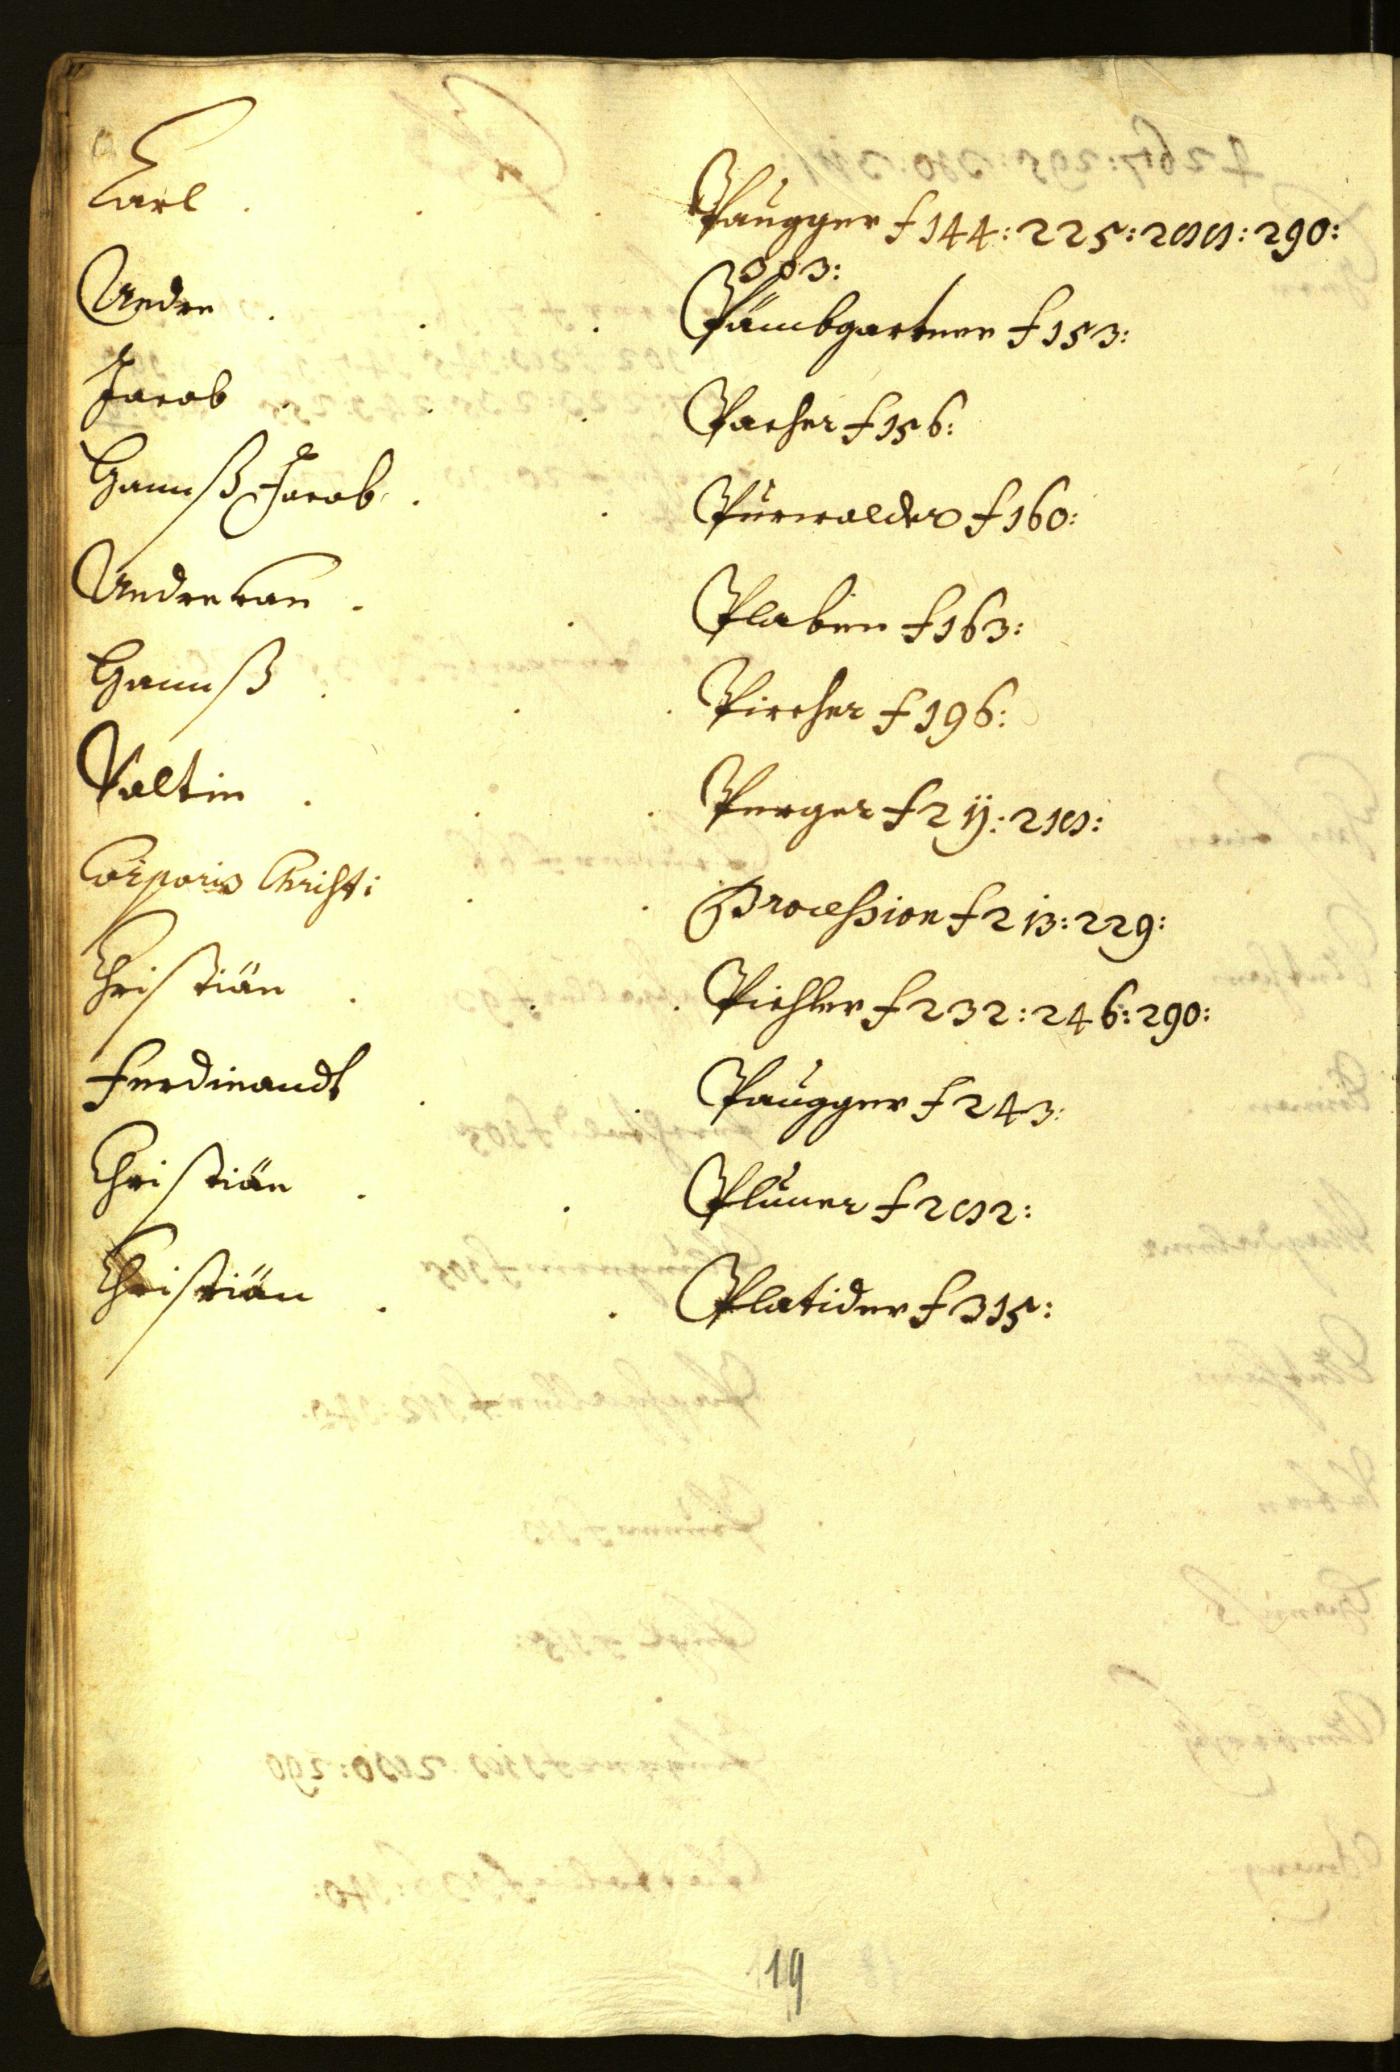 Carl . . . Paugger f 144: 225: 288: 290:
303:
Andre . . . Päumbgartner f 153:
Jacob . . . Pacher f 156:
Hannß Jacob . . Purwalder f 160:
Andre van . . Plaben f 163:
Hannß . . . Pircher f 196:
Valtin . . . Perger f 211: 218:
Corporis Christi . . Procession f 213: 229:
Christian . . . Pichler f 232: 246: 290:
Ferdinandt . . Paugger f 243:
Christian . . Pluner f 282:
Christian . . Platider f 315:
19